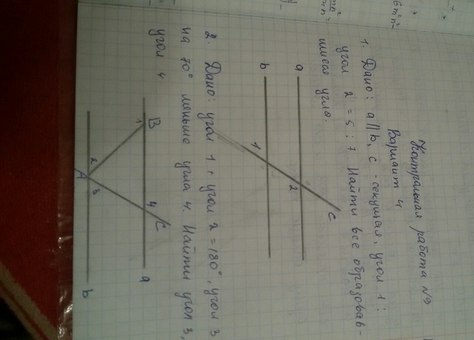 Контрольная работа №9
Вариант 4
1. Дано: a||b, c - секущая, угол 1 :
угол 2 = 5 : 7. Найти все образовав-
шиеся углы.
a
b
c
1
2
2. Дано: угол 1 + угол 2 = 180°, угол 3
на 70° меньше угла 4. Найти угол 3,
угол 4
B
C
a
1
4
A
2
3
b